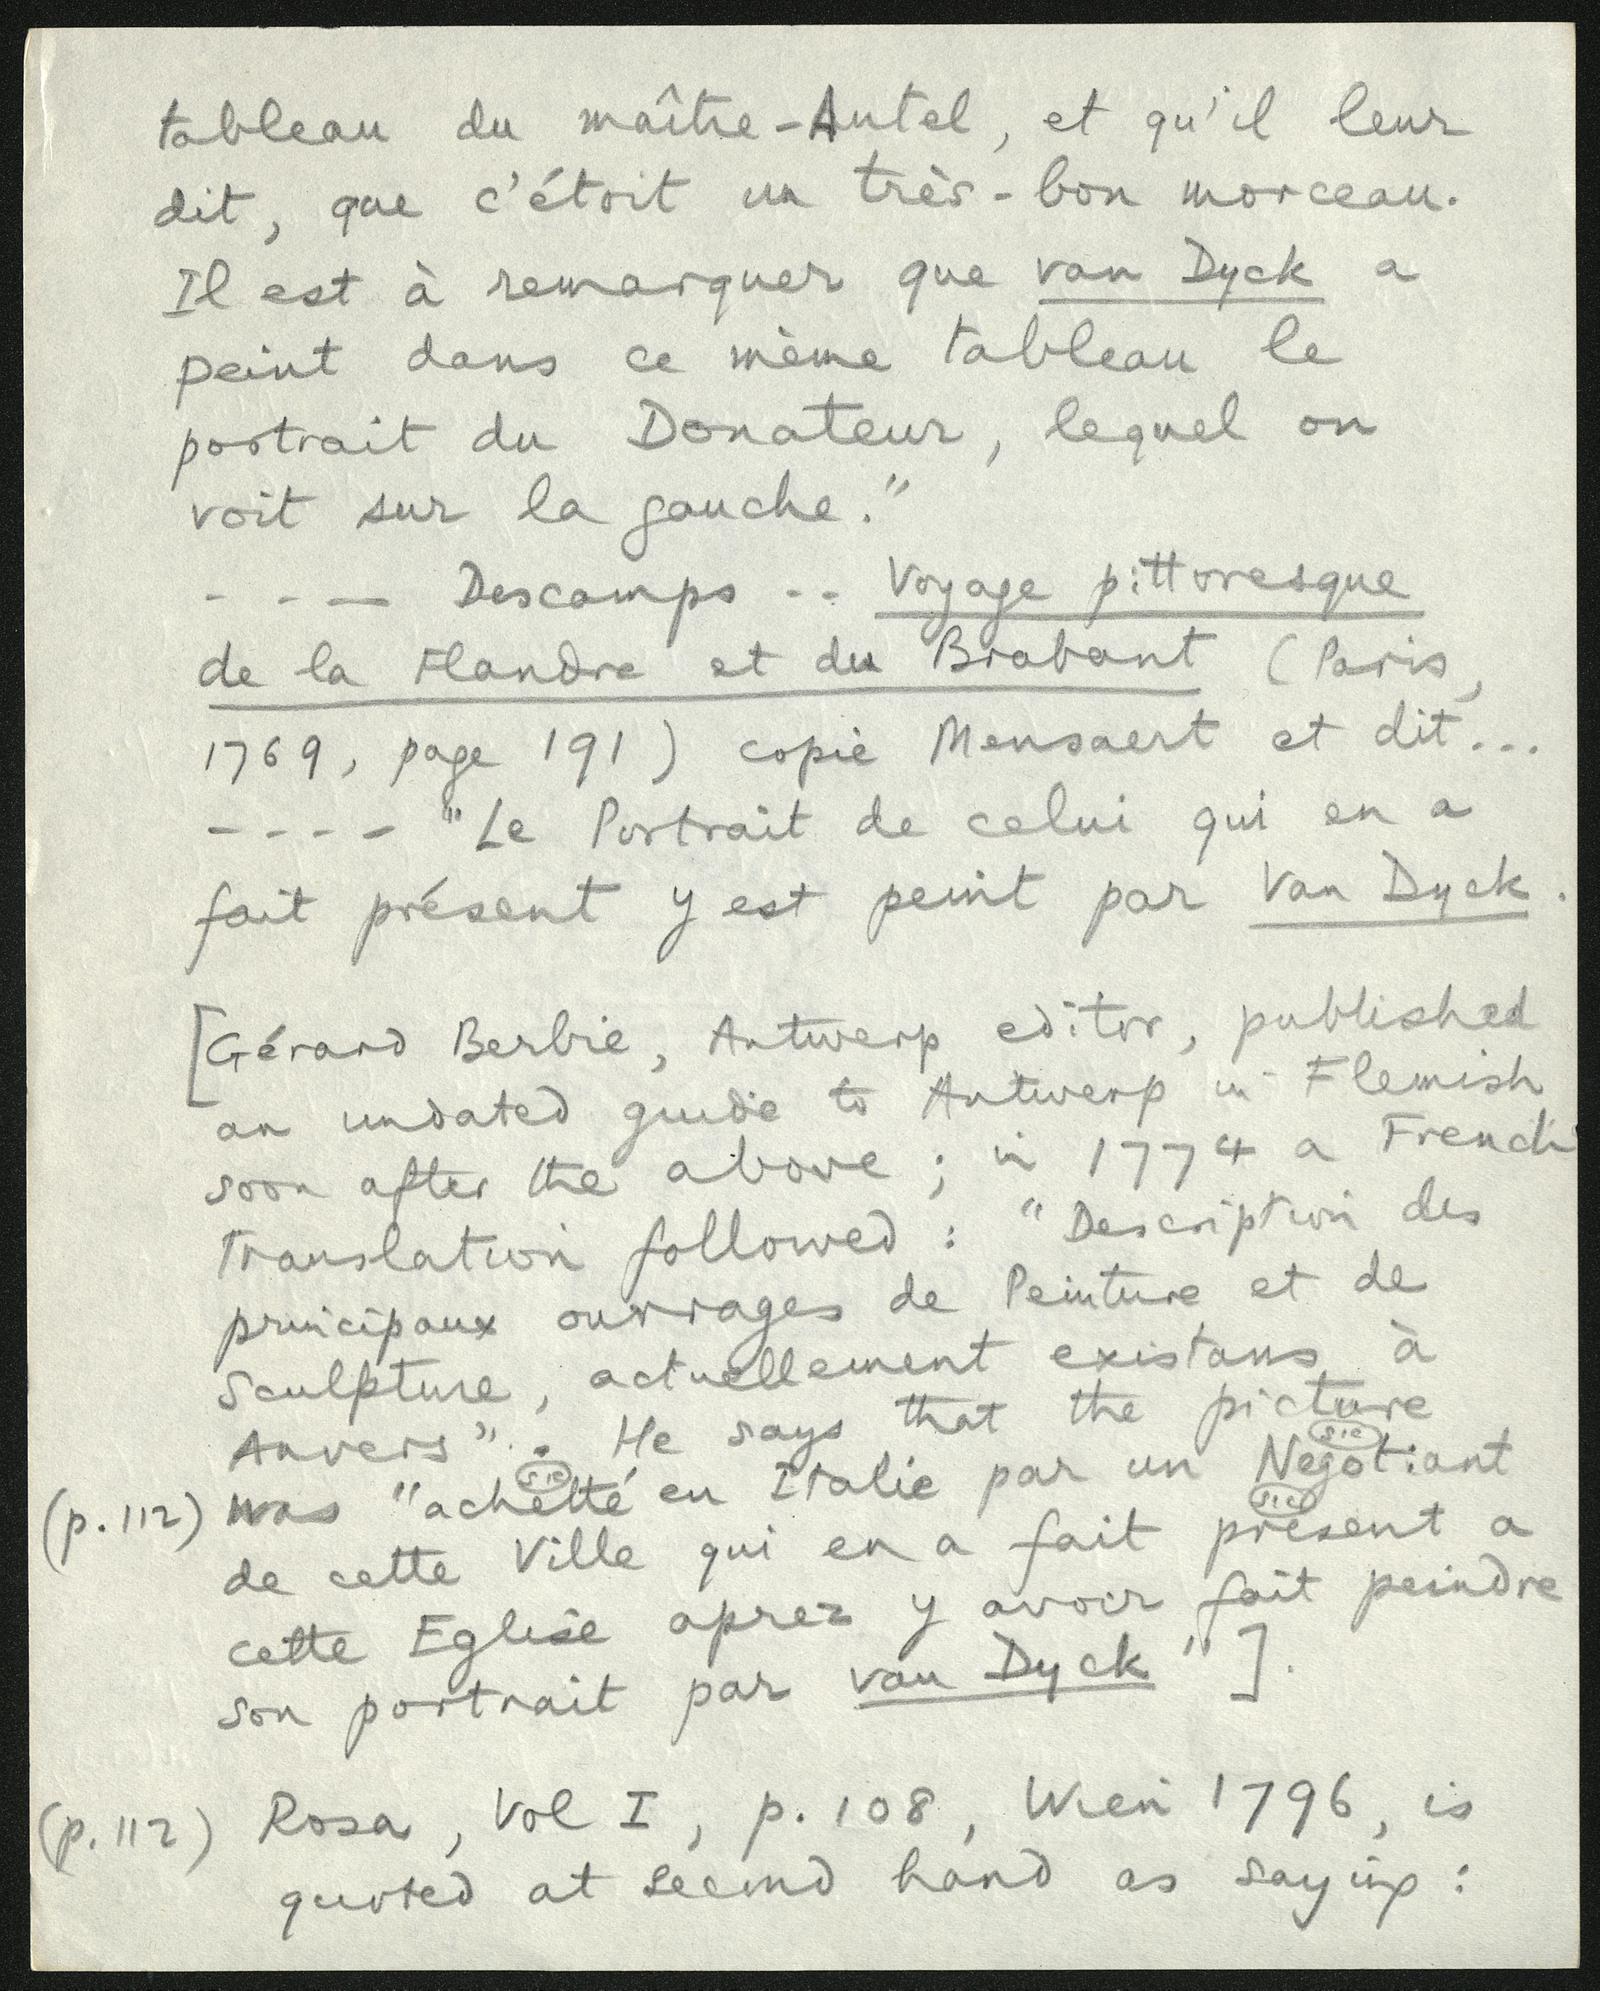 tableau du maître-Autel, et qu'il leur
dit, que c'étoit un très-bon morceau.
Il est à remarquer que van Dyck a
peint dans ce même tableau le
portrait du Donateur, lequel on
voit sur la gauche."
- - — Descamps -- Voyage pittoresque
de la Flandre et du Brabant (Paris,
1769, page 191) copie Mensaert et dit...
- - - - "Le Portrait de celui qui en a
fait présent y est peint par Van Dyck.
[Gérard Berbie, Antwerp editor, published
an undated guide to Antwerp in Flemish
soon after the above; in 1774 a French
Translation followed: "Description des
principaux ouvrages de Peinture et de
Sculpture, actuellement existans à
Anvers". He says that the picture
(p.112) was "achetté (sic) en Italie par un Negotiant (sic)
de cette Ville qui en a fait présent (sic) a
cette Eglise aprez y avoir fait peindre
son portrait par van Dyck"].
(p.112) Rosa, Vol I, p. 108, Wien 1796, is
quoted at second hand as saying: